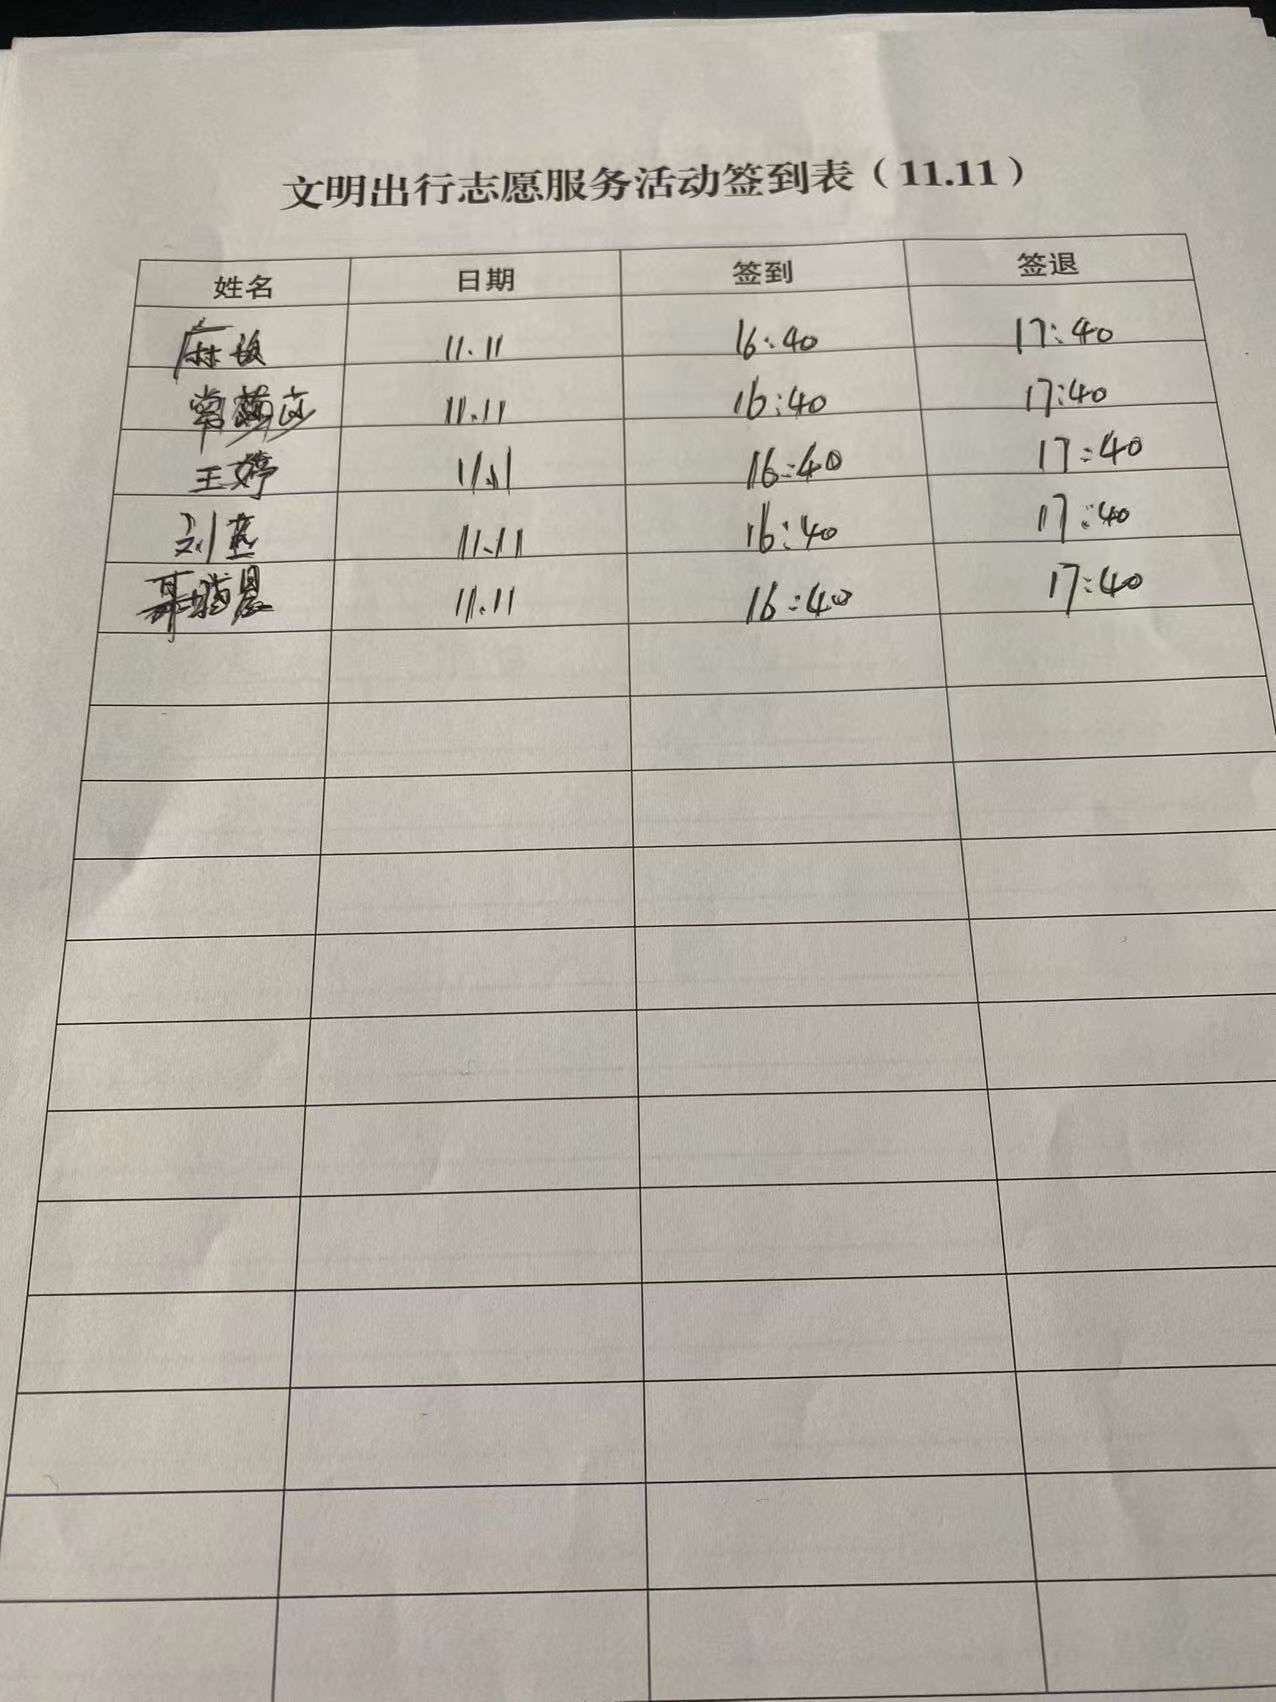 文明出行志愿服务活动签到表（11.11）
姓名 日期 签到 签退
麻 11.11 16:40 17:40
常 11.11 16:40 17:40
王婷 11.11 16:40 17:40
刘燕 11.11 16:40 17:40
11.11 16:40 17:40